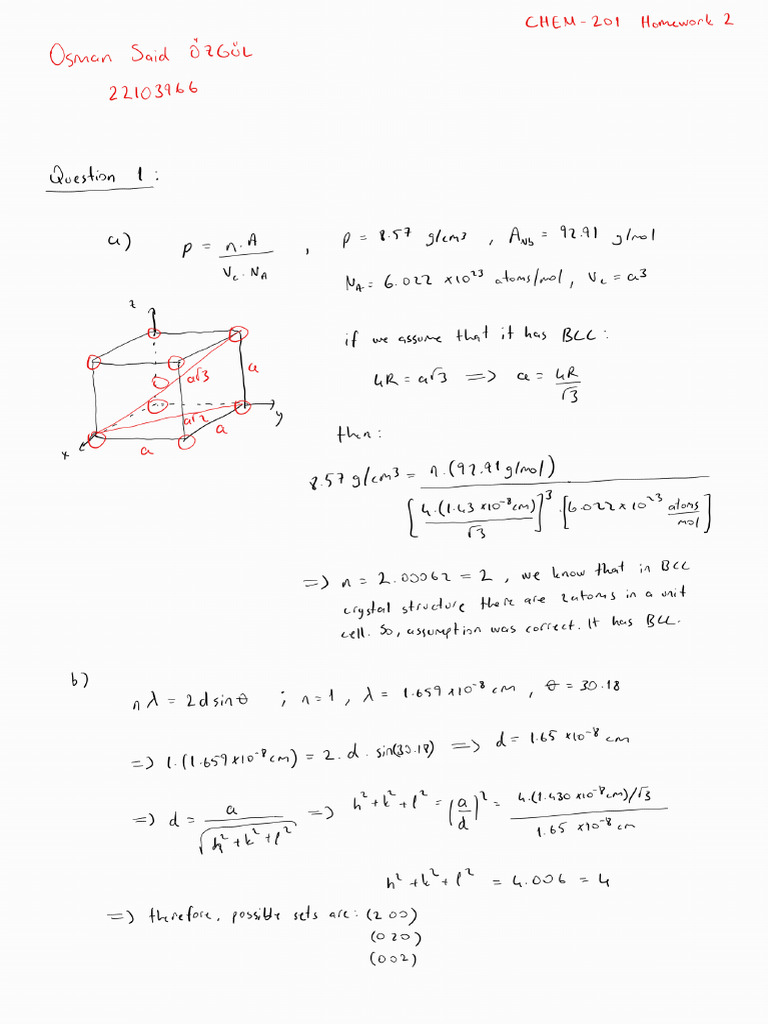 CHEM-201 Homework 2
Osman Said ÖZGÜL
22103966
Question 1:
a) P = n.A / Vc.NA , P = 8.57 g/cm3 , ANb = 92.91 g/mol
NA = 6.022 x10^23 atoms/mol, Vc = a3
if we assume that it has BCC:
4R = a√3 => a = 4R/√3
z
a√3
a
a√2
a
a
y
x
then:
8.57 g/cm3 = n.(92.91 g/mol) / [4.(1.43 x10^-8 cm)/√3]^3 . [6.022 x 10^23 atoms/mol]
=> n = 2.00062 = 2 , we know that in BCC
crystal structure there are 2 atoms in a unit
cell. So, assumption was correct. It has BCC.
b)
nλ = 2d sinθ ; n=1 , λ = 1.659 x10^-8 cm , θ = 30.18
=> 1.(1.659 x10^-8 cm) = 2. d. sin(30.18) => d = 1.65 x10^-8 cm
=> d = a / √(h^2+k^2+l^2) => h^2+k^2+l^2 = (a/d)^2 = 4.(1.430 x10^-8 cm)/√3 / 1.65 x10^-8 cm
h^2+k^2+l^2 = 4.006 = 4
=> therefore, possible sets are: (200)
(020)
(002)